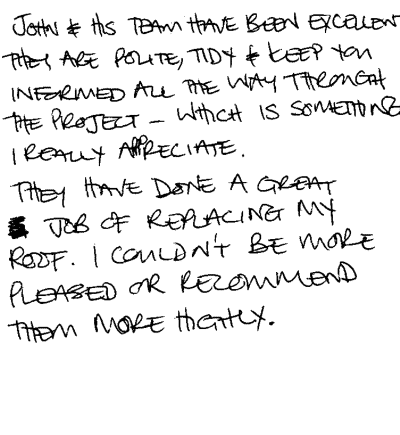 JOHN & HIS TEAM HAVE BEEN EXCELLENT
THEY ARE POLITE, TIDY & KEEP YOU
INFORMED ALL THE WAY THROUGH
THE PROJECT – WHICH IS SOMETHING
I REALLY APPRECIATE.
THEY HAVE DONE A GREAT
JOB OF REPLACING MY
ROOF. I COULDN'T BE MORE
PLEASED OR RECOMMEND
THEM MORE HIGHLY.